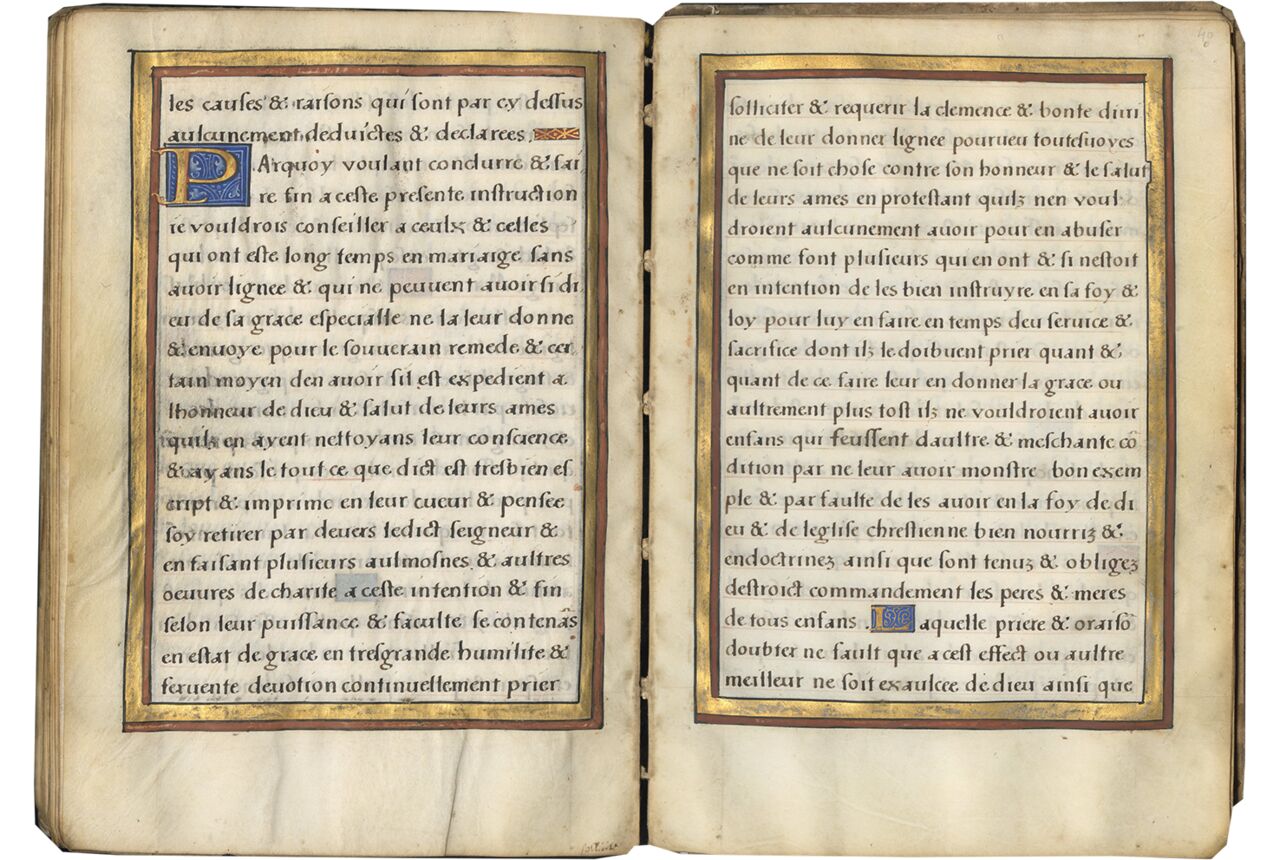 les causes & raisons qui sont par cy dessus
aulcunement deduictes & declarees.
PArquoy voulant conclurre & fai
re fin a ceste presente instruction
ie vouldrois conseiller a ceulx & celles
qui ont este long temps en mariaige sans
auoir lignee & qui ne peuuent auoir si di
eu de sa grace especialle ne la leur donne
& enuoye pour le souuerain remede & cer
tain moyen den auoir sil est expedient a
lhonneur de dieu & salut de leurs ames
quilz en ayent nettoyans leur conscience
& ayans le tout ce que dict est tresbien es
cript & imprime en leur cueur & pensee
soy retirer par deuers ledict seigneur &
en faisant plusieurs aulmosnes & aultres
oeuures de charite a ceste intention & fin
selon leur puissance & faculte se contenãs
en estat de grace en tresgrande humilite &
feruente deuotion continuellement prier
40
solliciter & requerir la clemence & bonte diui
ne de leur donner lignee pourueu toutesuoyes
que ne soit chose contre son honneur & le salut
de leurs ames en protestant quilz nen voul
droient aulcunement auoir pour en abuser
comme font plusieurs qui en ont & si nestoit
en intention de les bien instruyre en sa foy &
loy pour luy en faire en temps deu seruice &
sacrifice dont ilz le doibuent prier quant &
quant de ce faire leur en donner la grace ou
aultrement plus tost ilz ne vouldroient auoir
enfans qui feussent daultre & meschante cõ
dition par ne leur auoir monstre bon exem
ple & par faulte de les auoir en la foy de di
eu & de leglise chrestienne bien nourriz &
endoctrinez ainsi que sont tenuz & obligez
destroict commandement les peres & meres
de tous enfans. Laquelle priere & oraisõ
doubter ne fault que a cest effect ou aultre
meilleur ne soit exaulcee de dieu ainsi que